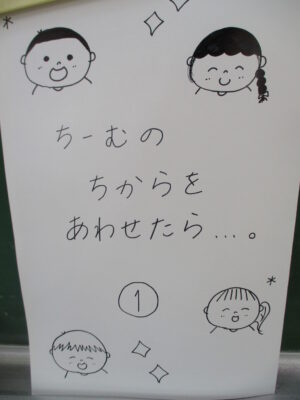 ちーむの
ちからを
あわせたら…。
①